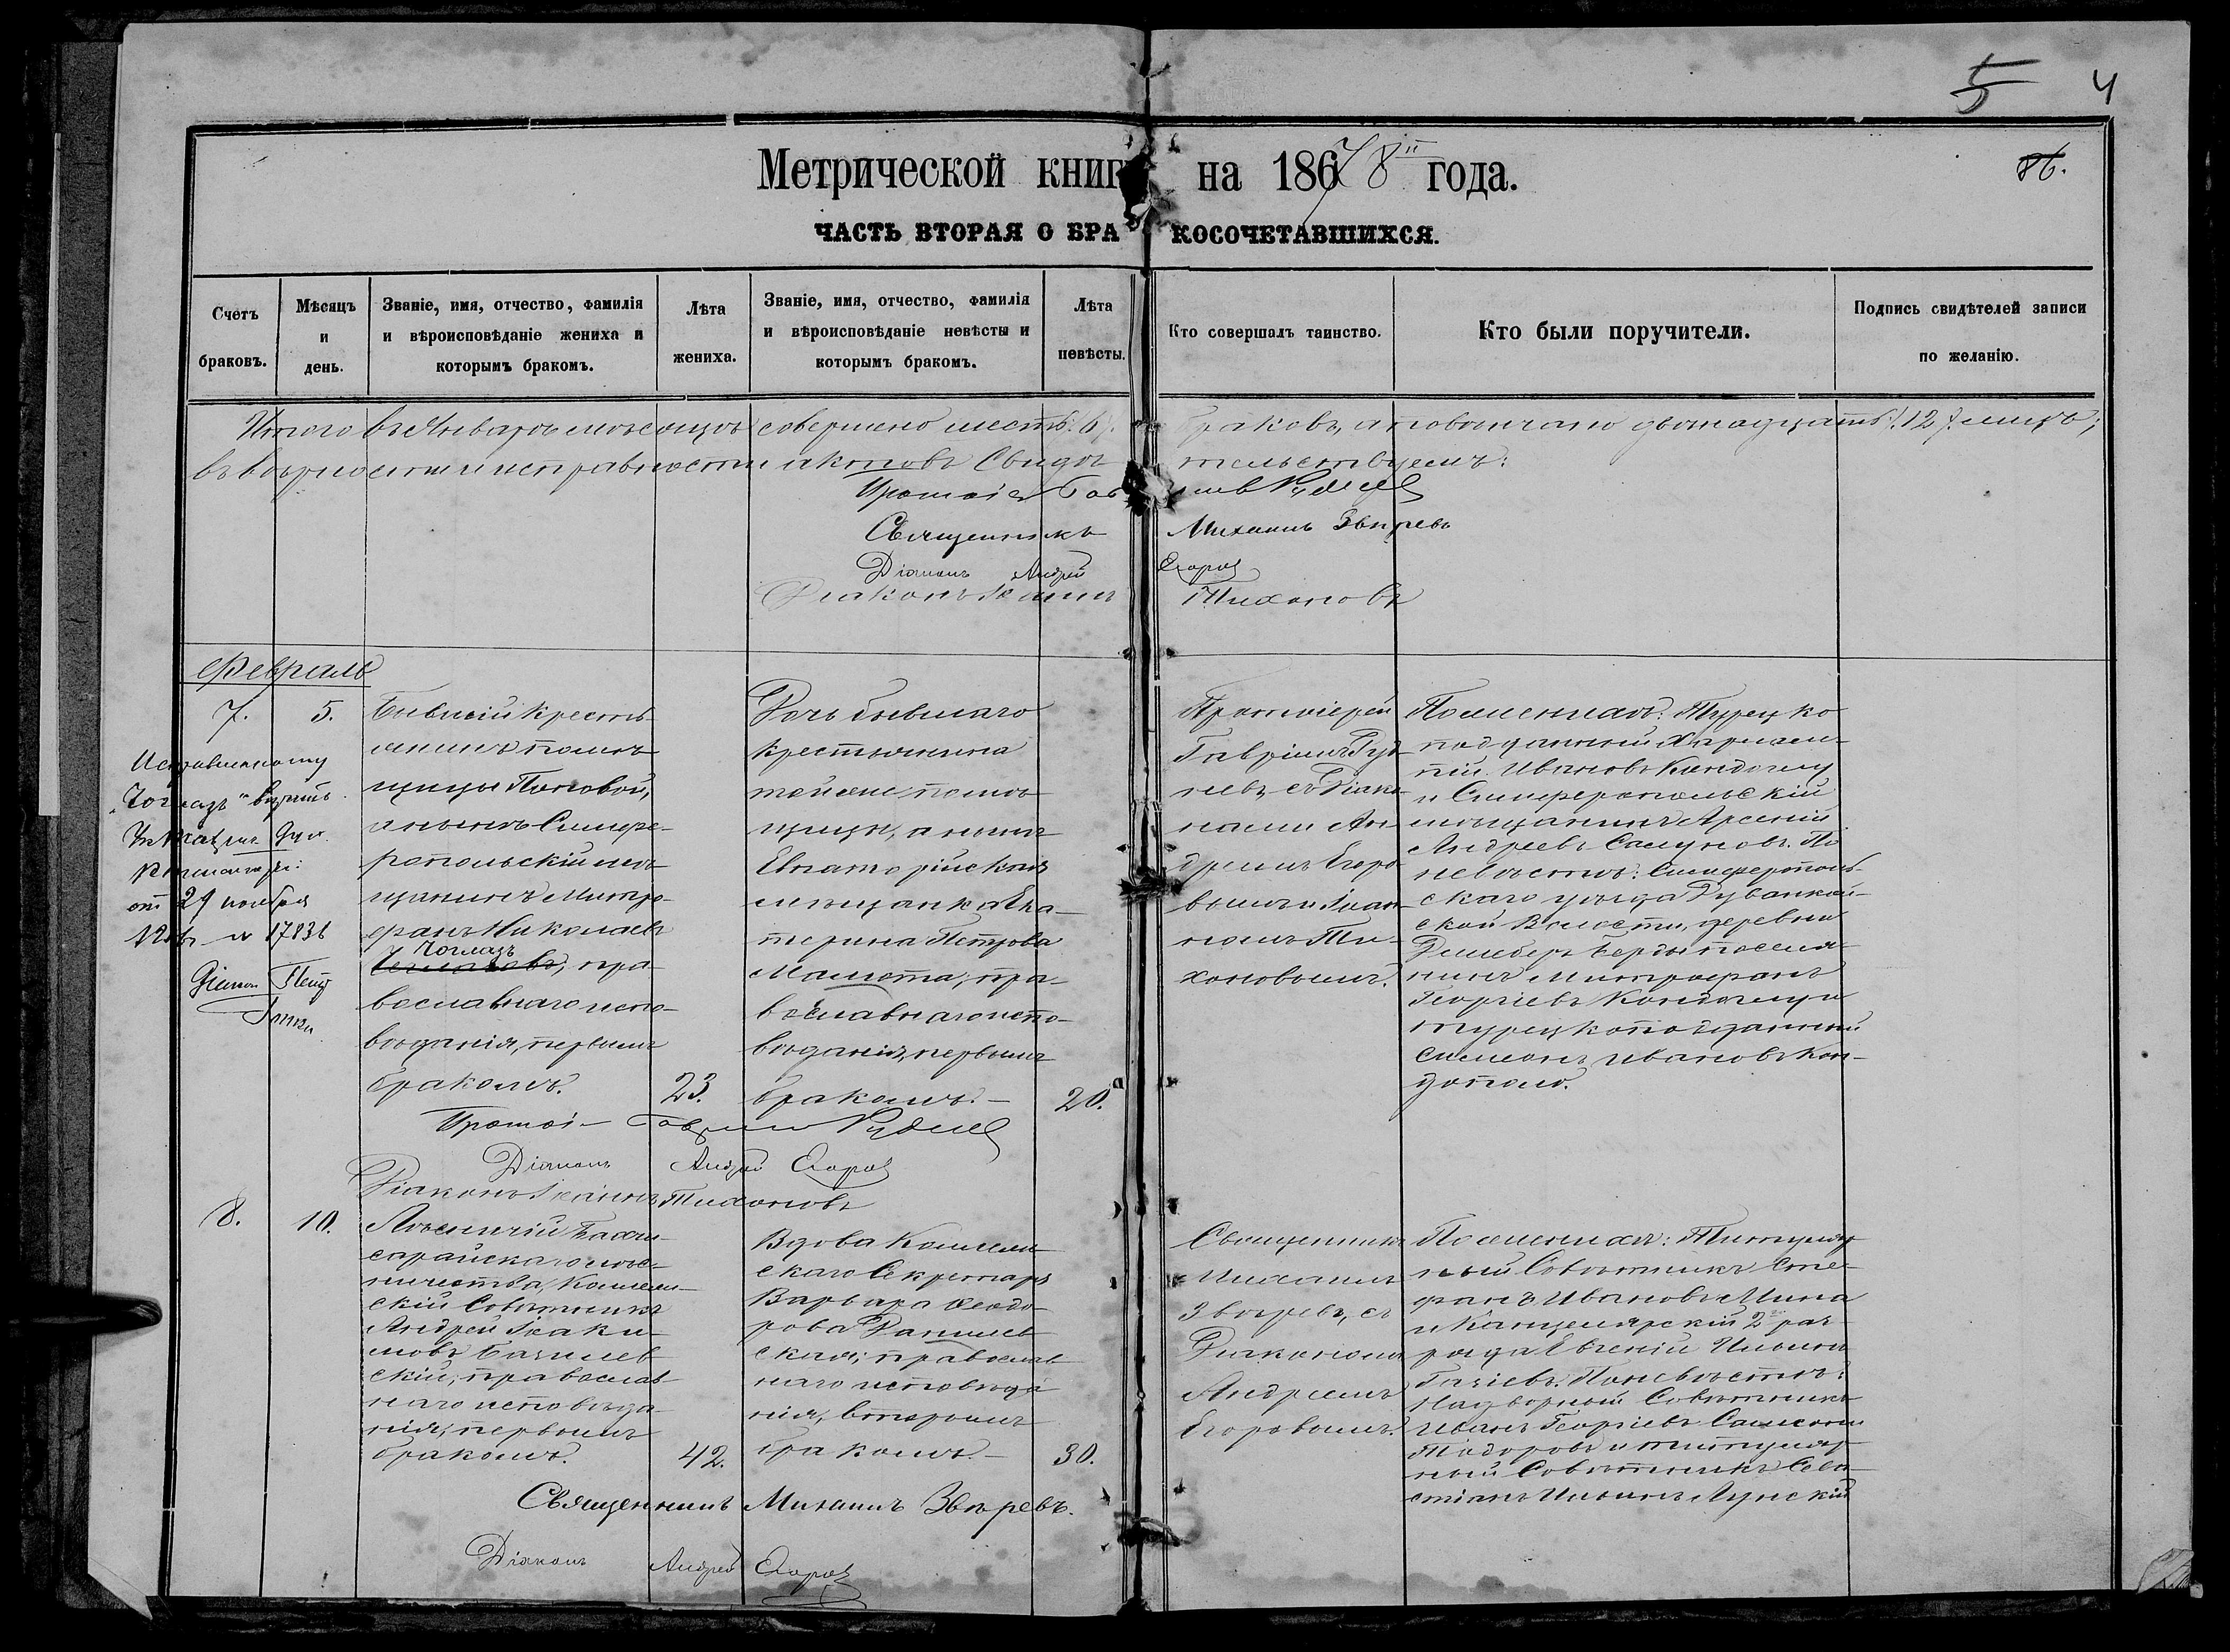 5 4
86.
Метрической книги на 1878 года.
ЧАСТЬ ВТОРАЯ О БРАКОСОЧЕТАВШИХСЯ.
Счетъ браковъ.
Мѣсяцъ и день.
Званіе, имя, отчество, фамилія
и вѣроисповѣданіе жениха и
которымъ бракомъ.
Лѣта жениха.
Званіе, имя, отчество, фамилія
и вѣроисповѣданіе невѣсты и
которымъ бракомъ.
Лѣта невѣсты.
Кто совершалъ таинство.
Кто были поручители.
Подпись свидѣтелей записи
по желанію.
Итого въ Январѣ мѣсяцѣ совершено шесть /6/. браковъ, а повѣнчано двѣнадцать /12/ лицъ;
въ вѣрности и исправности актовъ свидѣтельствуемъ:
Протоіе Гавріилъ Рудневъ
Священникъ Михаилъ Звѣревъ
Діаконъ Андрей Егоров
Діаконъ Іоаннъ Тихоновъ
Февраль
7.
5.
Исправленному
"Поглазъ" вѣрить
Указъ
от 29 ноября
№ 17836
Бывшій кресть-
янинъ помѣ-
щицы Поповой,
а нынѣ Симфе-
ропольскій мѣ-
щанинъ Митро-
фанъ Николаевъ
Поглазъ
пра-
вославнаго испо-
вѣданія, первымъ
бракомъ.
23.
Дочь бывшаго
крестьянина
той же помѣ-
щицы, а нынѣ
Евпаторійская
мѣщанка Ека-
терина Петрова
Мамета, пра-
вославнаго испо-
вѣданія, первымъ
бракомъ.
20.
Протоіерей
Гавріилъ Руд-
невъ съ Діако-
нами Ан-
дреемъ Его-
вымъ и Іоан-
номъ Ти-
хоновымъ.
По женихѣ: Турецко
подданный Харлам-
пій Ивановъ
и Симферопольскій
мѣщанинъ Арсеній
Андреевъ Самуновъ. По
невѣстѣ: Симферополь-
скаго уѣзда Дуванкой-
ской Волости, деревни
поселя-
нинъ Митрофанъ
Георгіевъ
турецкоподданный
Симеонъ Ивановъ Кон-
допуло.
Протоі Гавріилъ Рудневъ
Діаконъ Андрей Егоров
Діаконъ Іоаннъ Тихоновъ
8.
10.
Лѣсничій Бахчи-
сарайскаго лѣс-
ничества, Коллеж-
скій Совѣтникъ
Андрей Іоаки-
мовъ Базилев-
скій, православ-
наго исповѣда-
нія, первымъ
бракомъ.
42.
Вдова Коллеж-
скаго Секретаря
Варвара Ѳеодо-
рова Данилев-
ская, православ-
наго исповѣда-
нія, вторымъ
бракомъ.
30.
Священникъ
Михаилъ
Звѣревъ, съ
Діакономъ
Андреемъ
Егоровымъ.
По женихѣ: Титуляр-
ный Совѣтникъ Сте-
фанъ Ивановъ Мина
и Канцелярскій 2го раз-
ряда Евгеній Ильинъ
По невѣстѣ:
Надворный Совѣтникъ
Иванъ Георгіевъ
Тодоровъ и титуляр-
ный Совѣтникъ Сева-
стіанъ Ильинъ Лунскій
Священникъ Михаилъ Звѣревъ.
Діаконъ Андрей Егоров